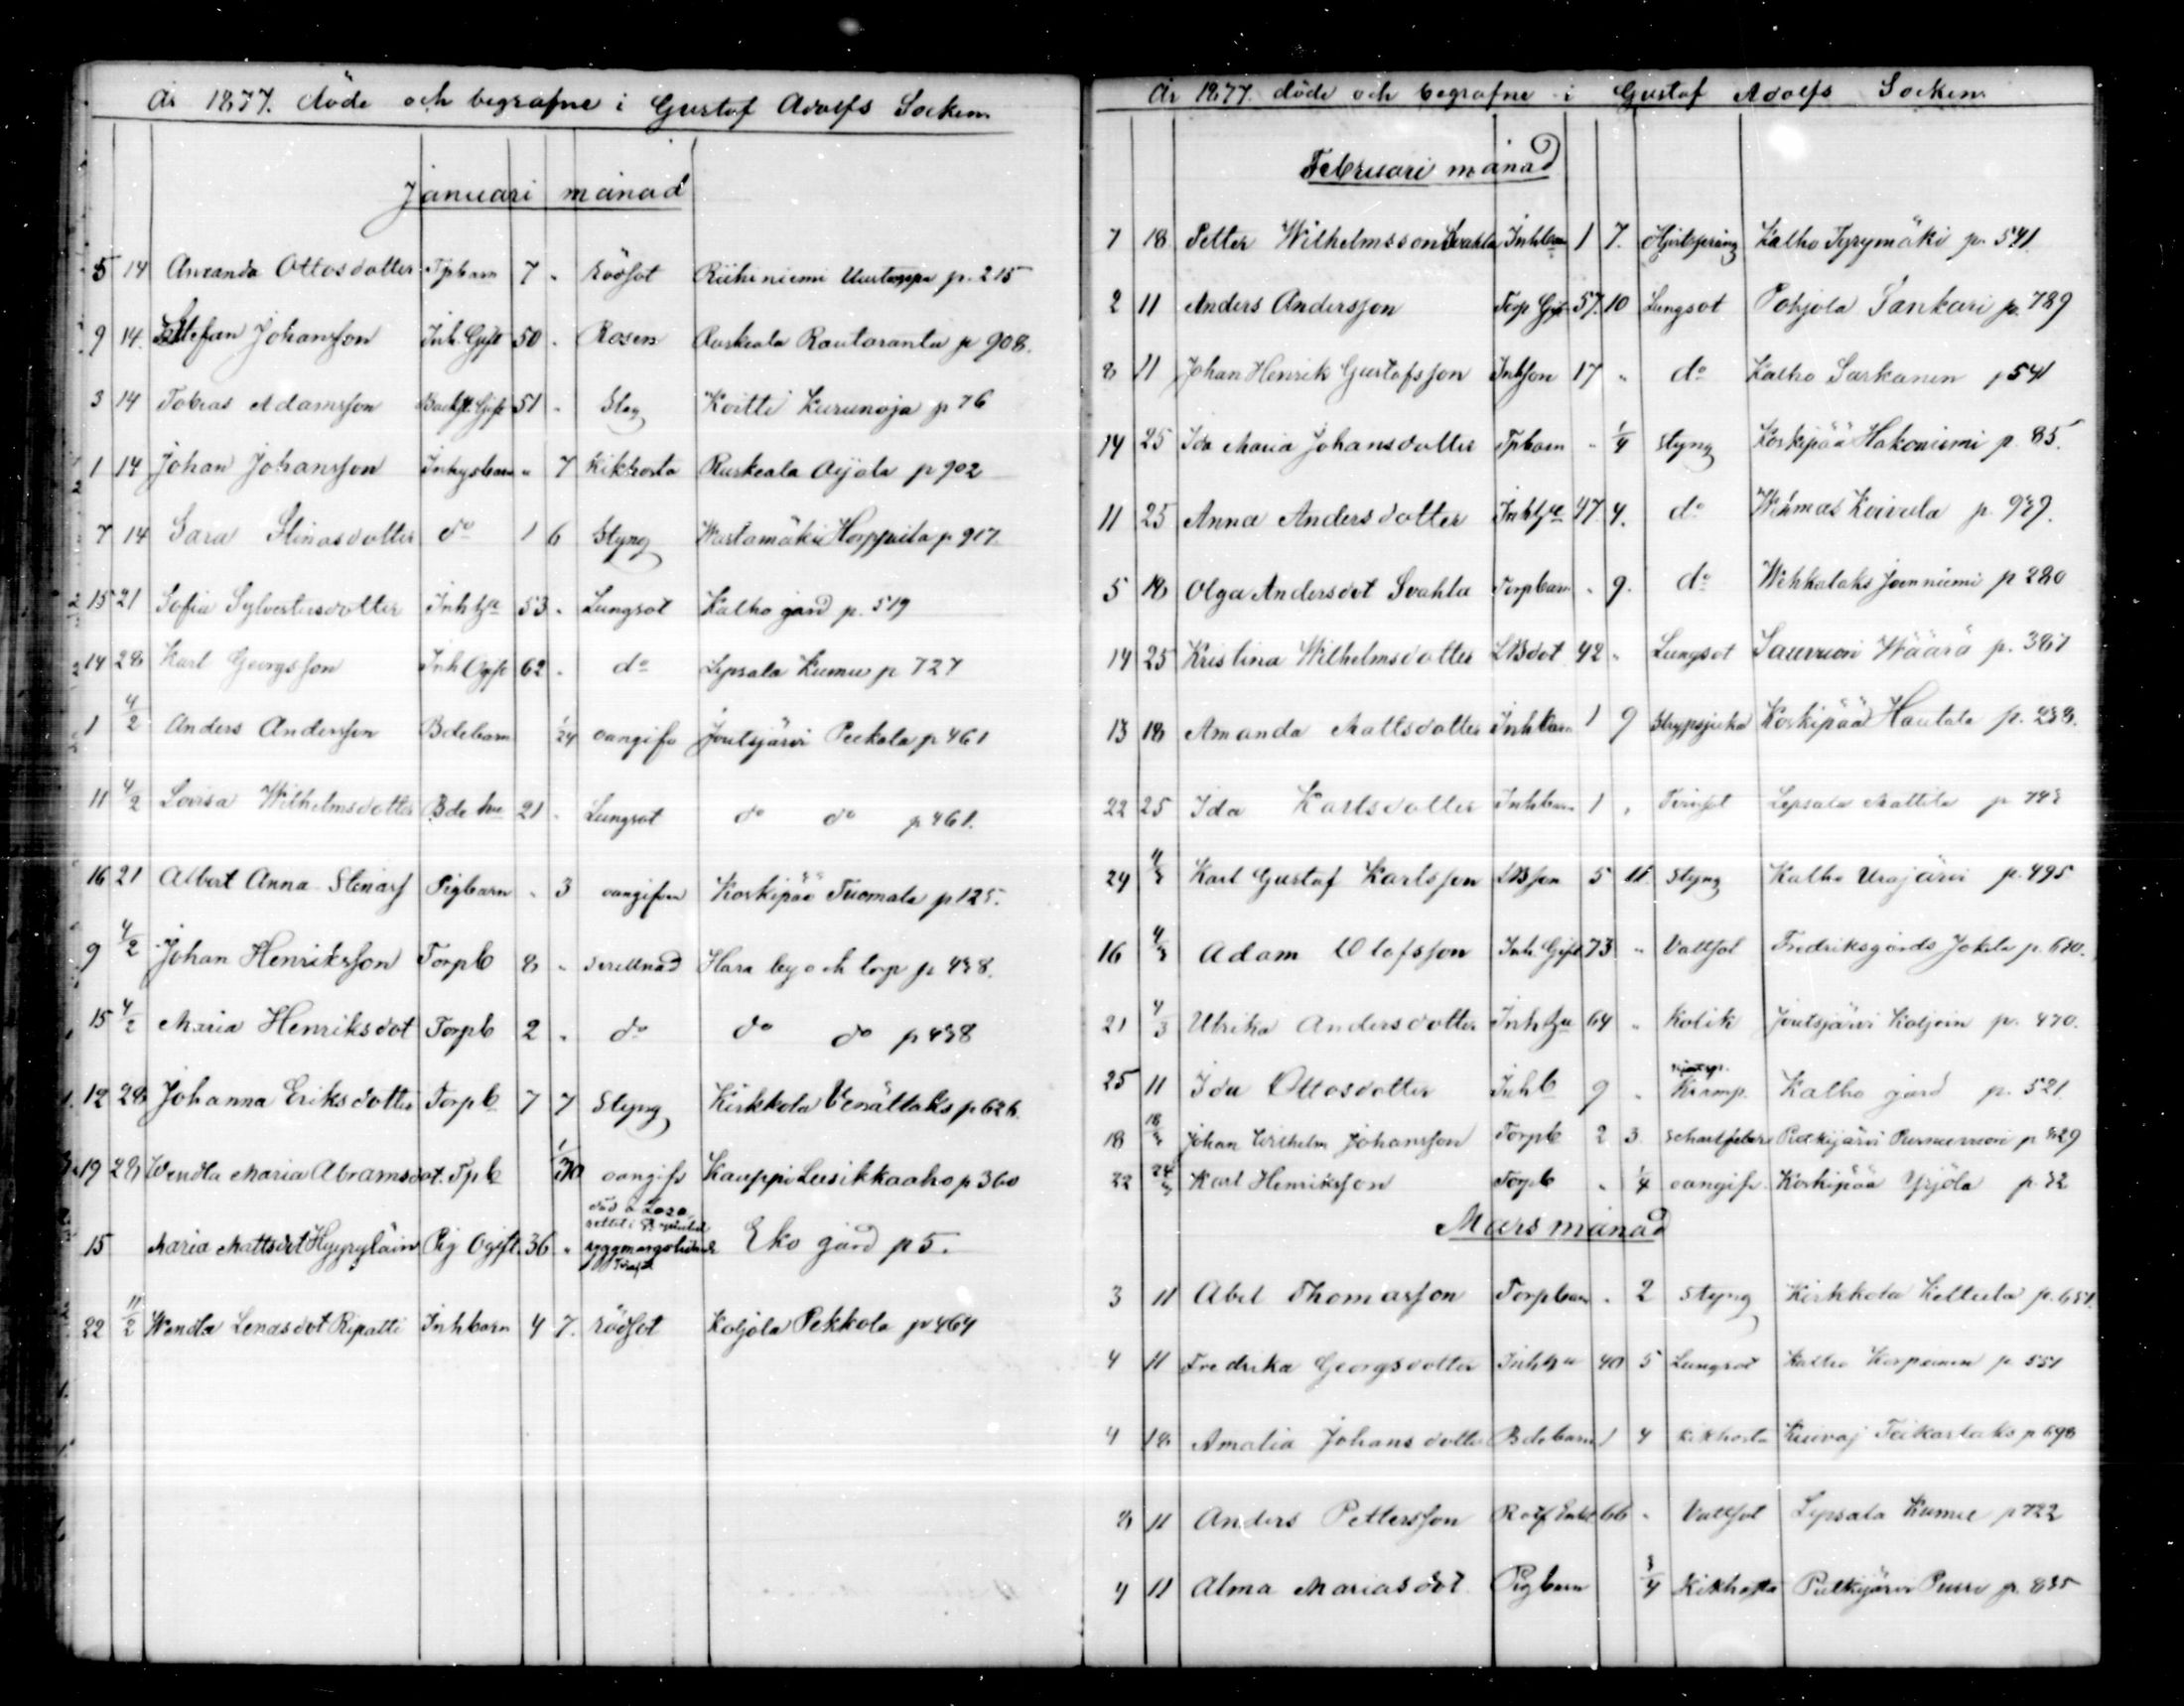 År 1877. döde och begrafne i Gustof Adolfs Socken.
Januari månad
5 14 Amanda Ottosdotter Tpbarn 7 " Rödsot Riihiniemi p. 215
9 14. Stefan Johansson Inh. Gift 50 " Rosen Ruskeala Rautaranta p 908.
3 14 Tobias Adamsson Backst. Gift 51 " Slag Koitti Kurunoja p 76
1 14 Johan Johansson Inhysbarn " 7 Kikhosta Ruskeala Aijala p 902
7 14 Sara Stinasdotter do 1 6 Styng Wastamäki Horppila p 917.
15 21 Sofia Sylvestersdotter Inh hu 53 " Lungsot Kalho gård p. 519
14 28 Karl Georgsson Inh Ogft 62 " do Lepsala Kumu p 727
1 4/2 Anders Andersson Bdebarn 1/24 oangifv Joutsjärvi Peekola p 461
11 4/2 Lovisa Wilhelmsdotter Bde hu 21 " Lungsot do do p 461.
16 21 Albert Anna Stinas Pigbarn " 3 oangifven Korkipää Tuomala p 125.
9 4/2 Johan Henriksson Torpb 8 " Hara by och torp p 438.
15 4/2 Maria Henriksdot Torpb 2 " do do do p 438
12 28 Johanna Eriksdotter Torpb 7 7 Styng Kirkkola Venättaks p 626.
19 28 Wendla Maria Abramsdot. Tpb 1/30 oangifv Kauppi Lusikkaaho p 360
15 Maria Mattsdot Hyyryläin Pig Ogift. 36 " ryggmärgslidande Eko gård p 5.
22 11/2 Wendla Lenasdot Ripatti Inhbarn 4 7. rödsot Koljola Pekkola p 464
År 1877. döde och begrafne i Gustof Adolfs Socken.
Februari månad
7 18 Petter Wilhelmsson Svahla Inhbarn 1 7. Kalho Tyrymäki p. 541.
2 11 Anders Andersson Torp Gift 57. 10 Lungsot Pohjola Tankari p. 789
8 11 Johan Henrik Gustafsson Inhson 17 " do Kalho Sarkanen p 541
14 25 Ida Maria Johansdotter Tpbarn " 1/4 styng Korkipää Hakoniemi p. 85.
11 25 Anna Andersdotter Inh hu 47 4. do Wehmas Koivula p. 939.
5 18 Olga Andersdot Svahla Torpbarn " 9. do Wehkalaks Joenniemi p 280
14 25 Kristina Wilhelmsdotter LBdot 42 " Lungsot Sauvuori Wäärä p. 361
13 18 Amanda Mattsdotter Inhbarn 1 9 Strypsjuka Korkipää Hautala p. 238.
22 25 Ida Karlsdotter Inhbarn 1 " Lepsala Mattila p 743
24 4/3 Karl Gustaf Karlsson LBson 5 11. styng Kalho Urajärvi p. 495
16 4/3 Adam Olofsson Inh. Gift 73 " Vattsot Fredriksgårds Jokela p. 610.
21 4/3 Ulrika Andersdotter Inh hu 64 " Kolik Joutsjärvi Koljoin p. 470.
25 11 Ida Ottosdotter Inhb 9 " Kramp. Kalho gård p. 521.
18 18/3 Johan Wilhelm Johansson Torpb 2 3 Scharlfeber Pulkijärvi p 829
22 24/3 Karl Henriksson Torpb " 1/4 oangifv Korkipää Yrjölä p. 32
Mars månad
3 11 Abel Thomasson Torpbarn " 2 styng Kirkkola Kellula p. 651.
4 11 Fredrika Georgsdotter Inh hu 40 5 Lungsot Kalho Korpainen p 551
4 18 Amalia Johansdotter Bdebarn 1 4 Kikhosta Kuivaj Teikarlaks p 698
8 11 Anders Pettersson Rotf Enkl 66 " Vattsot Lepsala Kumu p 722
4 11 Alma Mariasdot Pigbarn 3/4 Kikhosta Pulkijärvi Purri p. 835